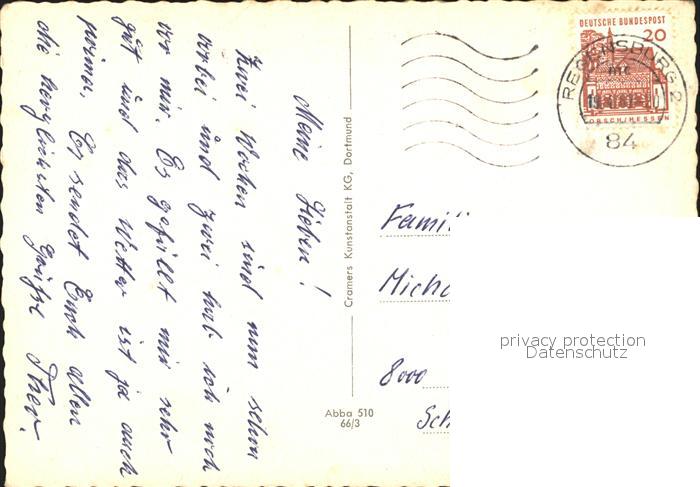 Meine Lieben!
Zwei Wochen sind nun schon
vorbei und zwei hab ich noch
vor mir. Es gefällt mir sehr
gut und das Wetter ist ja auch
prima. Es sendet Euch allen
die herzlichsten Grüße
Cramers Kunstanstalt KG, Dortmund
Abba 510
66/3
DEUTSCHE BUNDESPOST
20
LORSCH/HESSEN
REGENSBURG 2
84
Famil
Mich
8000
Sch
privacy protection
Datenschutz